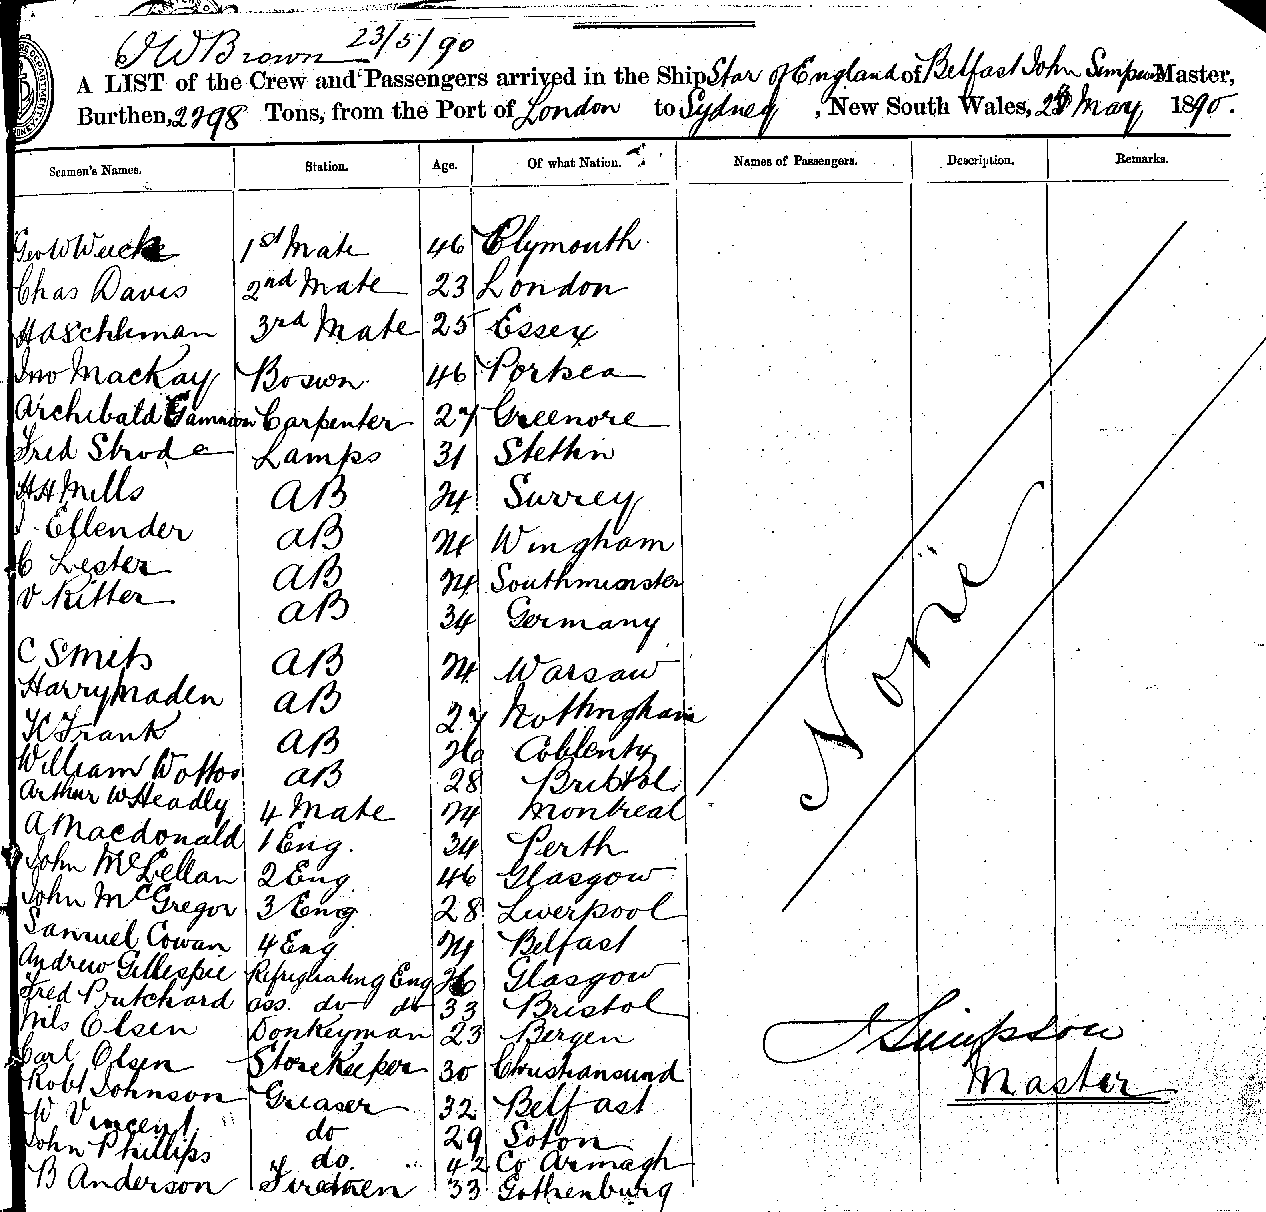 J W Brown 23/5/90
A LIST of the Crew and Passengers arrived in the Ship Star of England of Belfast John Simpson Master,
Burthen, 2298 Tons, from the Port of London to Sydney, New South Wales, 23 May 1890.
Seamen's Names. Station. Age. Of what Nation. Names of Passengers. Description. Remarks.
Geo W 1st Mate 46 Plymouth
Chas Davis 2nd Mate 23 London
3rd Mate 25 Essex
Jno Mackay Boswn 46 Portsea
Archibald Gammon Carpenter 27 Greenore
Fred Strode Lamps 31 Stettin
HH Mills AB 24 Surrey
Ellender AB 24 Wingham
C Lester AB 24 Southminster
V Ritter AB 34 Germany
C Smits AB 24 Warsaw
Harry Maden AB 27 Nottingham
K Frank AB 26 Coblentz
William Wotton AB 28 Bristol
Arthur W Headly 4 Mate 24 Montreal
A Macdonald 1 Eng. 34 Perth
John McLellan 2 Eng 46 Glasgow
John McGregor 3 Eng 28 Liverpool
Samuel Cowan 4 Eng 24 Belfast
Andrew Gillespie Refrigirating Eng 26 Glasgow
Fred Pritchard ass. do do 33 Bristol
Nils Olsen Donkeyman 23 Bergen
Carl Olsen Storekeeper 30 Christiansund
Robt Johnson Greaser 32 Belfast
W Vincent do 29 Soton
John Phillips do. 42 Co Armagh
B Anderson Firemen 33 Gothenburg
None
J Simpson
Master